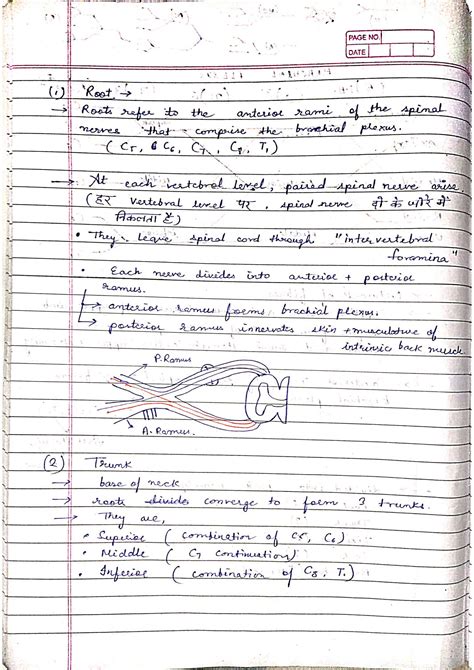 PAGE NO.
DATE
(1) Root →
→ Roots refer to the anterior rami of the spinal
nerves that comprise the brachial plexus.
( C5, C6, C7, C8, T1)
→ At each vertebral level, paired spinal nerve arise
(हर vertebral level पर, spinal nerve दो के जोड़े में
निकलता है)
• They leave spinal cord through "intervertebral
foramina"
• Each nerve divides into anterior + posterior
ramus.
→ anterior ramus forms brachial plexus.
→ posterior ramus innervates skin + musculature of
intrinsic back muscle
P. Ramus
A. Ramus.
(2) Trunk
→ base of neck
→ roots divides converge to form 3 trunks.
→ They are,
• Superior ( combination of C5, C6)
• Middle ( C7 continuation)
• Inferior ( combination of C8, T1)